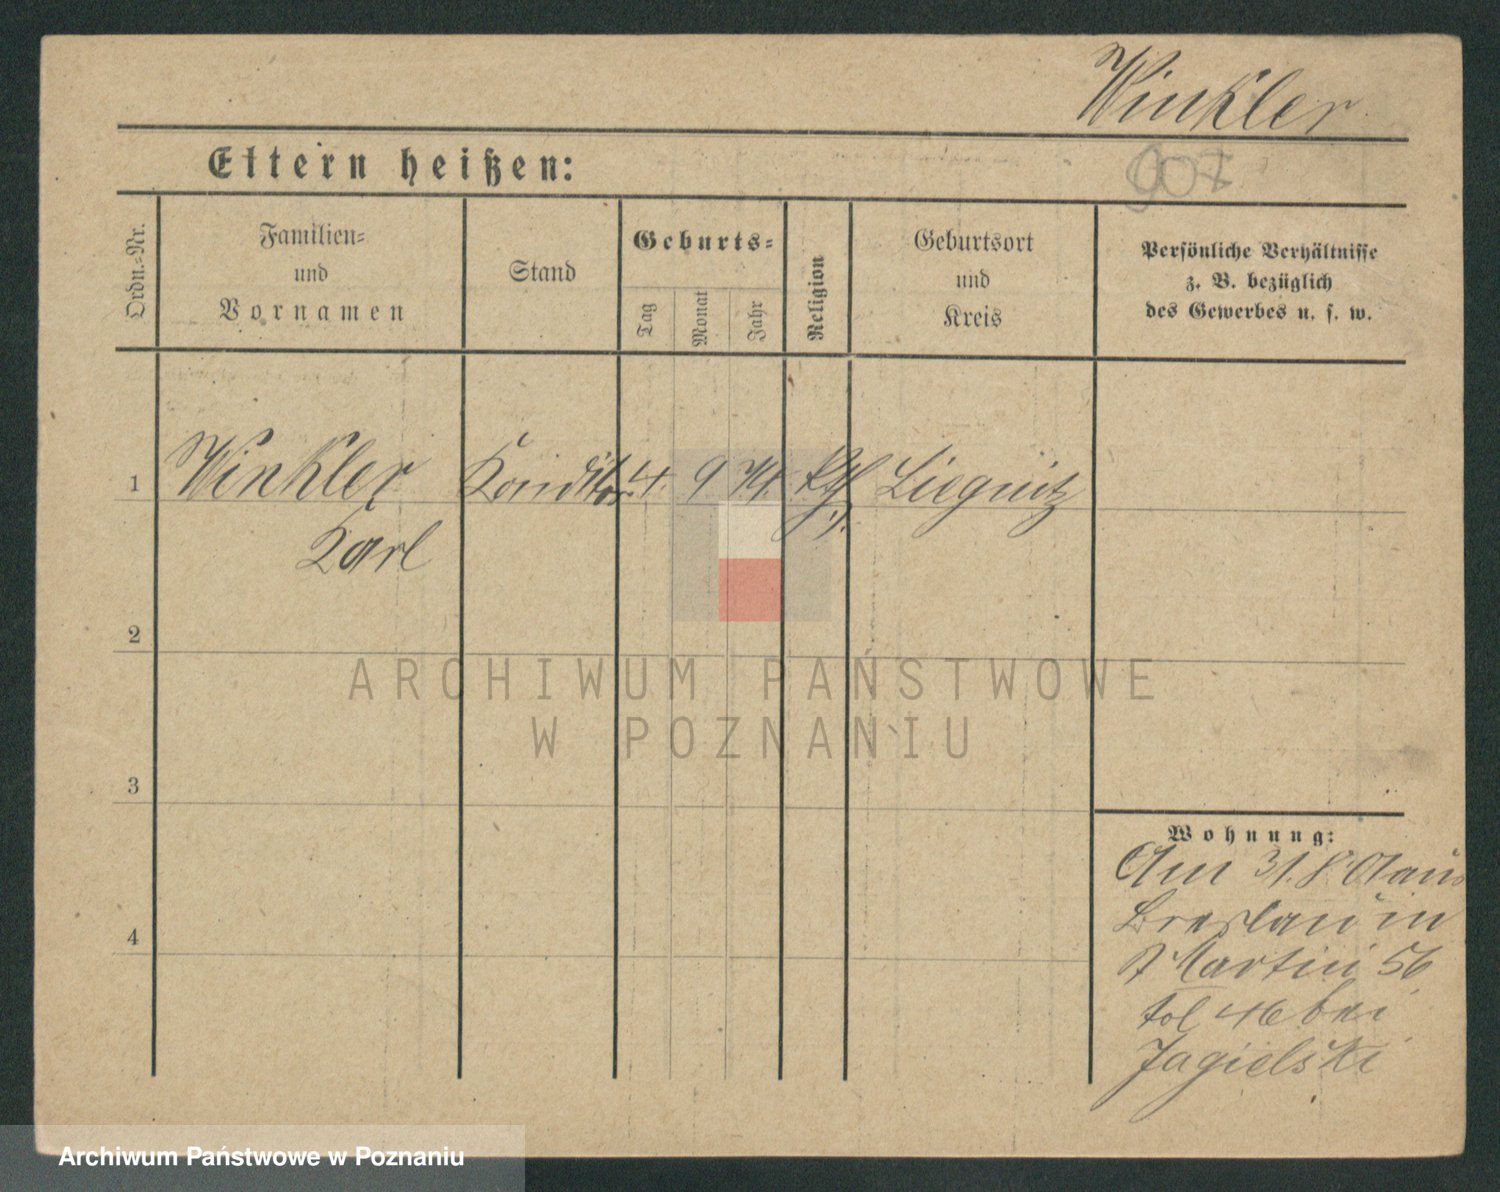 Winkler
907
Eltern heißen:
Ordn.-Nr.
Familien-
und
Vornamen
Stand
Geburts-
Tag
Monat
Jahr
Religion
Geburtsort
und
Kreis
Persönliche Verhältnisse
z. B. bezüglich
des Gewerbes u. s. w.
1 Winkler Konditor 4. 9 Liegnitz
Karl
2
3
4
Wohnung:
Am 31. 8. aus
Breslau in
St Martin 56
fol 46 bei
Jagielski
ARCHIWUM PAŃSTWOWE
W POZNANIU
Archiwum Państwowe w Poznaniu